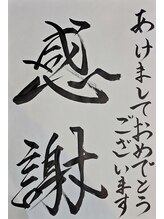 あけましておめでとう
ございます
感謝